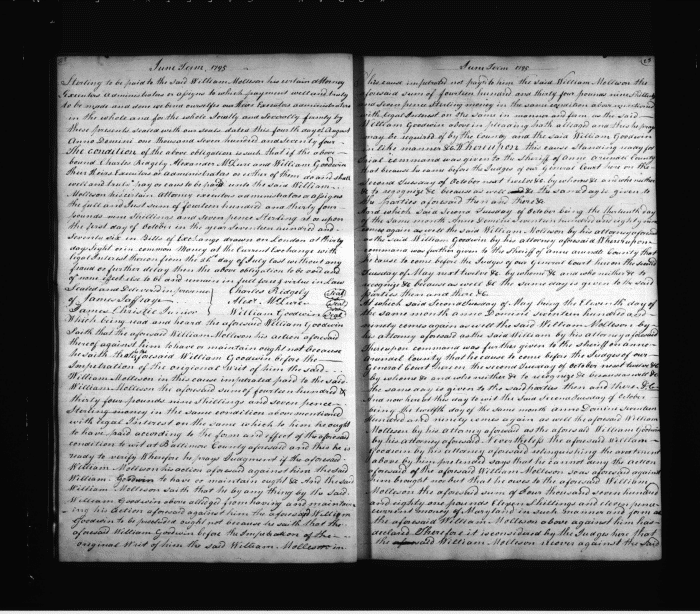 June Term, 1795
Sterling to be paid to the said William Molleson his certain attorney
Executors administrators or assigns to which payment well and truly
to be made and done we bind ourselves our Heirs Executors administrators
in the whole and for the whole Jointly and Severally firmly by
these presents sealed with our seals dated this fourth day of August
Anno Domini one thousand seven hundred and seventy four
The condition of the above obligation is such that if the above
bound Charles Ridgely Alexander McClure and William Goodwin
their Heirs Executors or administrators or either of them do and shall
well and truly pay or cause to be paid unto the said William
Molleson his certain attorney executors administrators or assigns
the full and Just sum of fourteen hundred and thirty four
pounds nine Shillings and seven pence Sterling at or upon
the first day of October in the year Seventeen hundred and
Seventy six in Bills of Exchange drawn on London at thirty
days sight or in common Money at the Current Exchange with
legal Interest thereon from the 26th day of July last without any
fraud or further delay then the above obligation to be void and
of none effect else to be and remain in full force & virtue in Law
Sealed and Delivered in Presence Charles Ridgely Seal
of James Jaffray Alexr. McClure Seal
James Christie Junior William Goodwin Seal
Which being read and heard the aforesaid William Goodwin
Saith that the aforesaid William Molleson his action aforesaid
thereof against him to have or maintain ought not because
he saith that the aforesaid William Goodwin before the
Impetration of the original Writ of him the said
William Molleson in this cause impetrated paid to the said
William Molleson the aforesaid sum of fourteen hundred &
thirty four pounds nine shillings and seven pence
Sterling money in the same condition above mentioned
with legal Interest on the same which to him he ought
to have paid according to the form and effect of the aforesaid
condition to wit at Baltimore County aforesaid and this he is
ready to verify Wherefore he prays Judgment if the aforesaid
William Molleson his action aforesaid against him the said
William Goodwin to have or maintain ought &c And the said
William Molleson Saith that he by any thing by the said
William Goodwin above alledged from having and maintain
ing his action aforesaid against him the aforesaid William
Goodwin to be precluded ought not because he saith that the
aforesaid William Goodwin before the Impetration of the
original Writ of him the said William Molleson in
June Term 1795
this cause impetrated not paid to him the said William Molleson the
aforesaid sum of fourteen hundred and thirty four pounds nine shillings
and seven pence sterling money in the same condition above mentioned
with legal Interest on the same in manner and form as the said
William Goodwin above in pleading hath alledged and this he prays
may be required of by the County and the said William Goodwin
in like manner &c Whereupon this cause standing ready for
trial command was given to the Sheriff of Anne Arundel County
that he cause to come before the Judges of our General Court here on the
Second Tuesday of October next twelve &c by whom &c and who neither
&c to recognize &c because as well &c the same day is given to
the parties aforesaid then and there &c
At which said Second Tuesday of October being the thirteenth day
of the same month Anno Domini Seventeen hundred and eighty
comes again as well the said William Molleson by his attorney aforesaid
as the said William Goodwin by his attorney aforesaid Whereupon
command was further given to the Sheriff of anne arundel County that
he cause to come before the Judges of our General Court here on the second
Tuesday of May next twelve &c by whom &c and who neither &c to
recognize &c because as well &c the same day is given to the said
parties then and there &c
At which said Second Tuesday of May being the Eleventh day of
the same month anno Domini Seventeen hundred and
ninety comes again as well the said William Molleson by
his attorney aforesaid as the said William by his attorney aforesaid
Whereupon command was further given to the Sheriff of anne
Arundel County that he cause to come before the Judges of our
General Court here on the second Tuesday of October next twelve &c
by whom &c and who neither &c to recognize &c because as well &c
the same day is given to the said parties then and there &c
And now here at this day to wit the Said Second Tuesday of October
being the twelfth day of the same month anno Domini Seventeen
hundred and ninety comes again as well the aforesaid William
Molleson by his attorney aforesaid as the aforesaid William Goodwin
by his attorney aforesaid Nevertheless the aforesaid William
Goodwin by his attorney aforesaid relinquishing the averment
above by him pretended says that he cannot deny the action
aforesaid of the aforesaid William Molleson nor but that he owes to the aforesaid William
Molleson the aforesaid sum of four thousand seven hundred
and eighty one pounds fifteen shillings and eleven pence
current money of Maryland in such manner and form as
the aforesaid William Molleson above against him has
declared Therefore it is considered by the Judges here that
the said William Molleson recover against the said